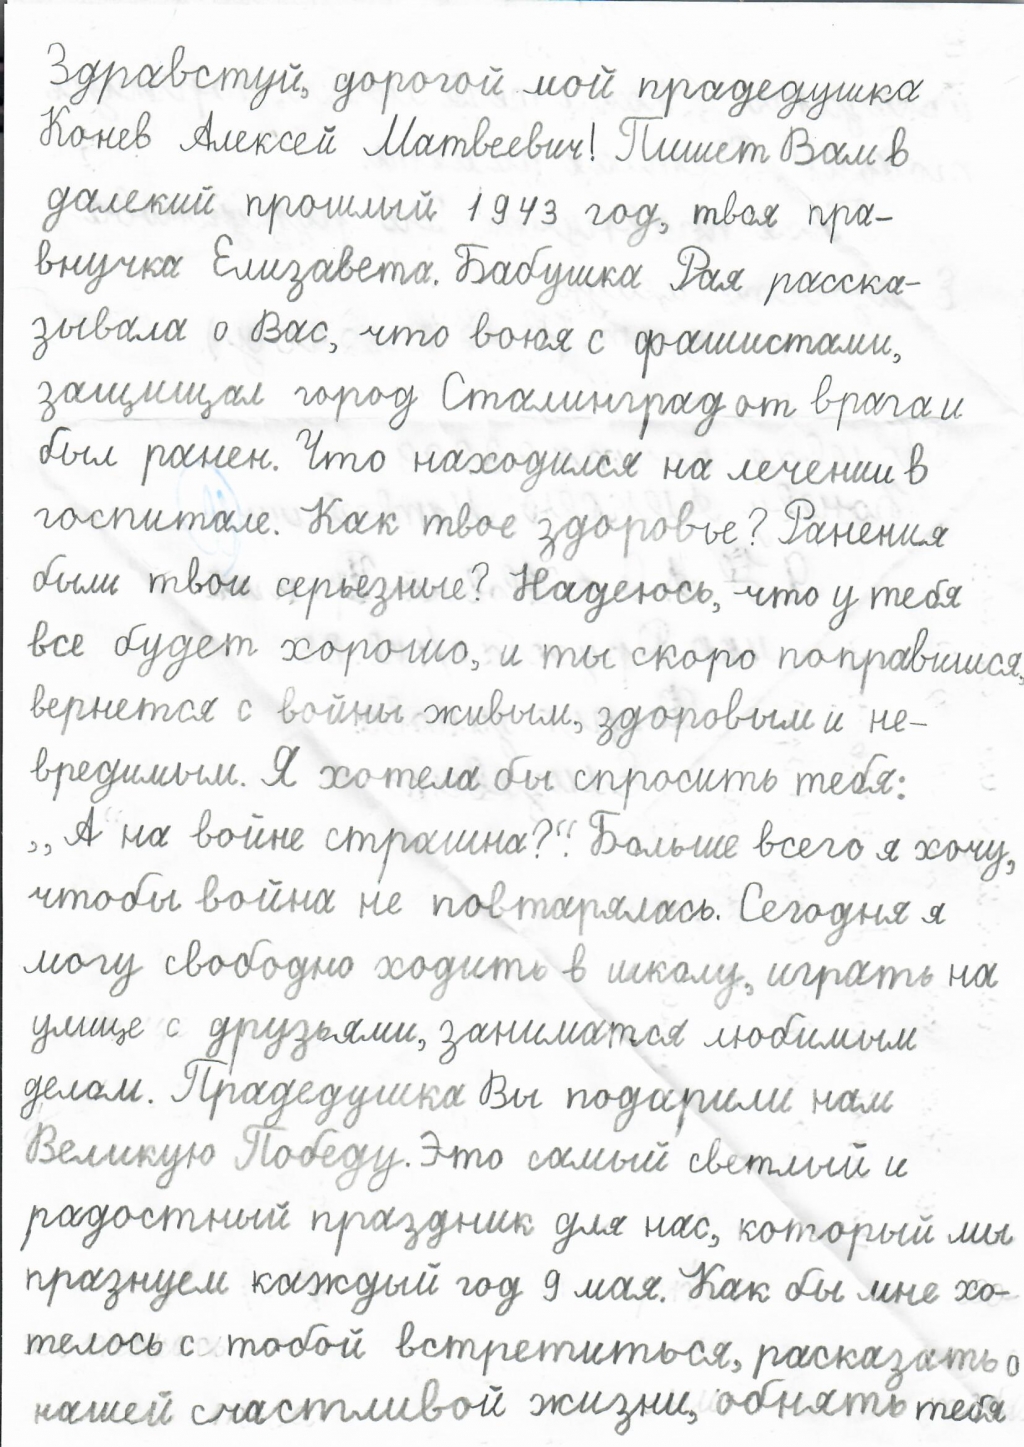 Здравстуй, дорогой мой прадедушка
Конев Алексей Матвеевич! Пишет Вам в
далекий прошлый 1943 год, твоя пра-
внучка Елизавета. Бабушка Рая расска-
зывала о Вас, что воюя с фашистами,
защищал город Сталинград от врага и
был ранен. Что находился на лечении в
госпитале. Как твое здоровье? Ранения
были твои серьезные? Надеюсь, что у тебя
все будет хорошо, и ты скоро поправишся,
вернется с войны живым, здоровым и не-
вредимым. Я хотела бы спросить тебя:
„А на войне страшна?“. Больше всего я хочу,
чтобы война не повтарялась. Сегодня я
могу свободно ходить в школу, играть на
улице с друзьями, заниматся любимым
делом. Прадедушка Вы подарили нам
Великую Победу. Это самый светлый и
радостный праздник для нас, который мы
празнуем каждый год 9 мая. Как бы мне хо-
телось с тобой встретиться, расказать о
нашей счастливой жизни, обнять тебя